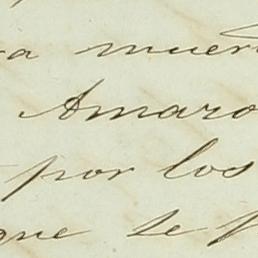 muer
Amaro
por los
que se